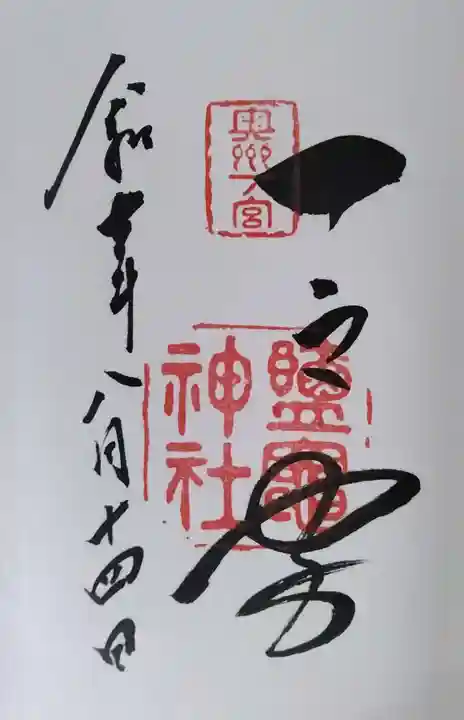 奥州一宮
一之宮
鹽竈
神社
令和 年八月十四日